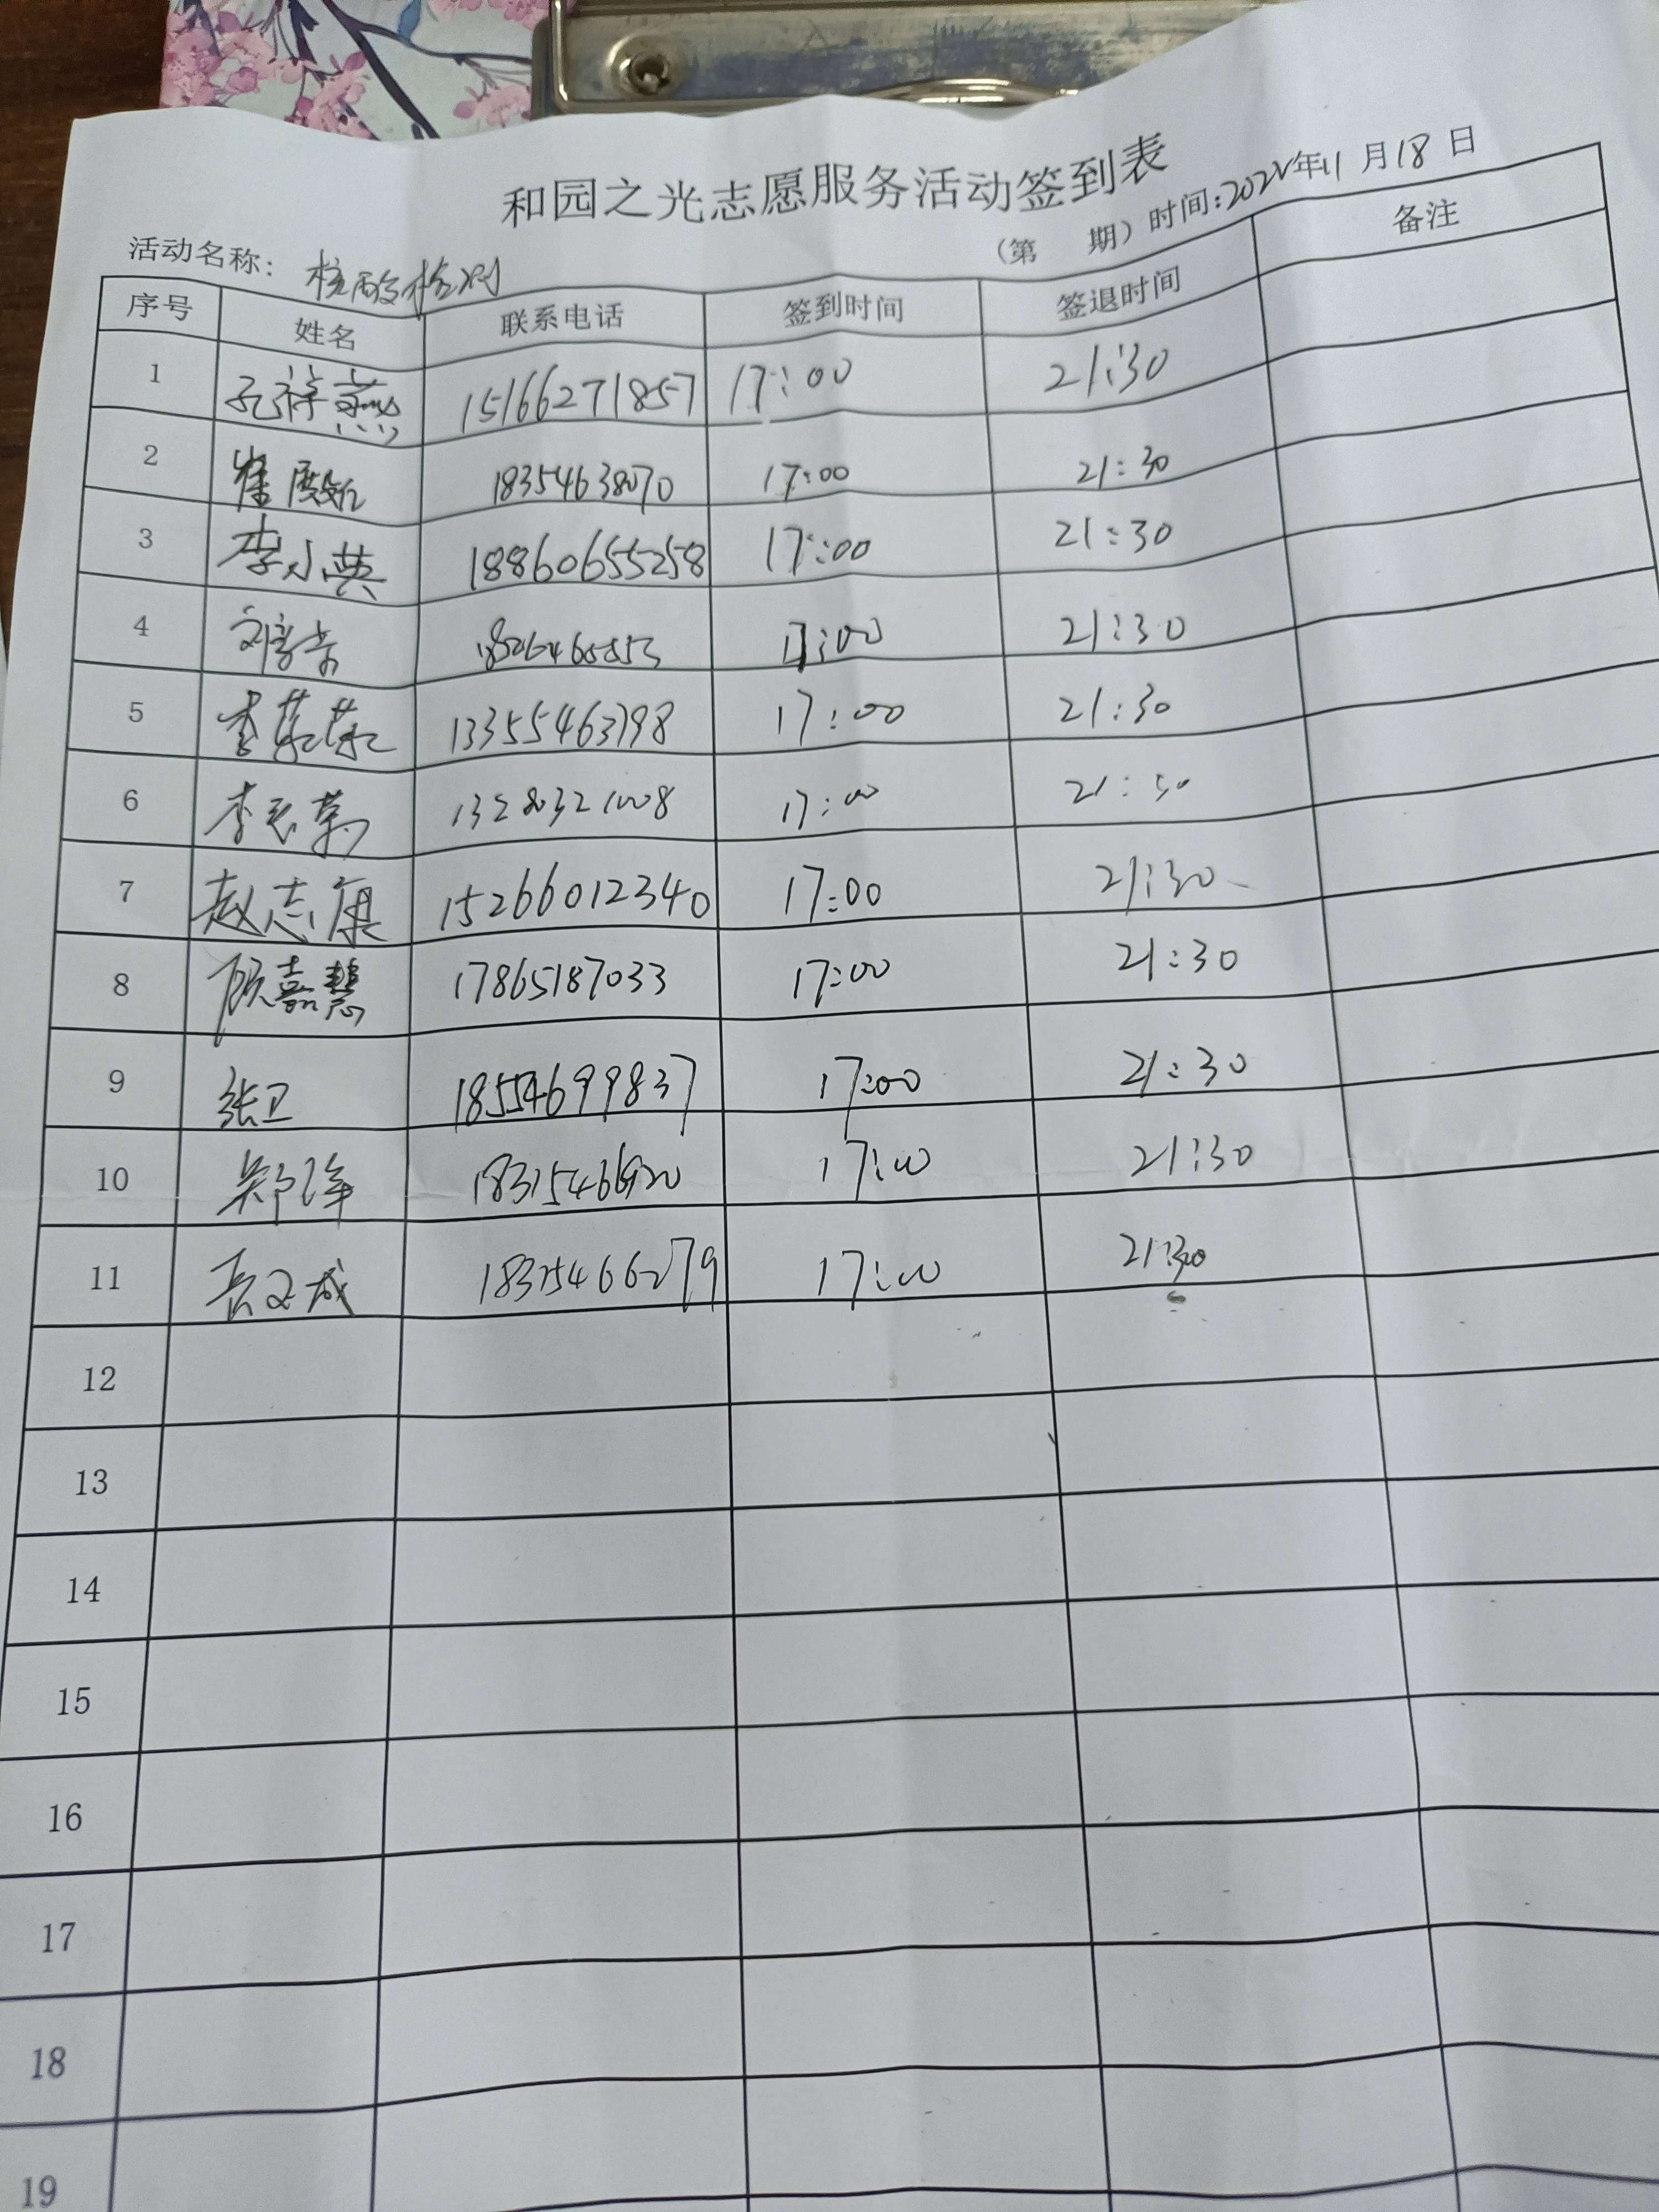 和园之光志愿服务活动签到表
活动名称: 核酸检测 (第 期) 时间:2022年11月18日
序号 姓名 联系电话 签到时间 签退时间 备注
1 孔祥燕 15166271857 17:00 21:30
2 崔殿 18354638070 17:00 21:30
3 李小英 18860655258 17:00 21:30
4 刘 17:00 21:30
5 李荣荣 13355463798 17:00 21:30
6 李 13280321008 17:00 21:30
7 赵志康 15266012340 17:00 21:30
8 顾嘉慧 17865187033 17:00 21:30
9 张卫 18554699837 17:00 21:30
10 郑 17:00 21:30
11 文成 18325466279 17:00 21:30
12
13
14
15
16
17
18
19